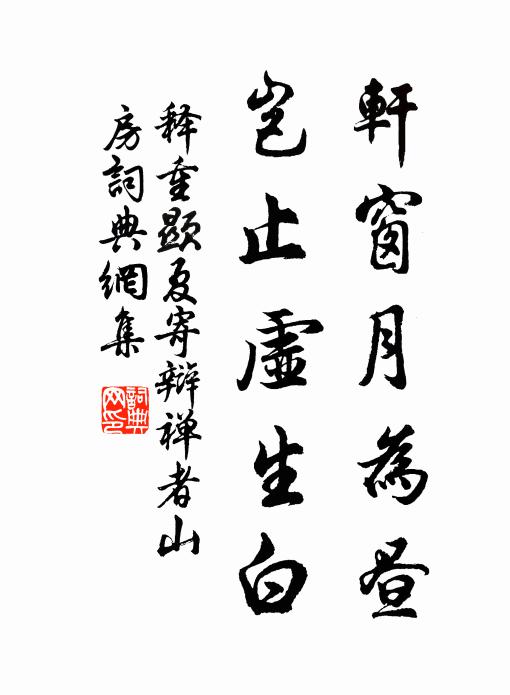 軒窗月為昼
岂止虛生白
释重顯夏寄辯禅者山
房詞典網集
詞典网印